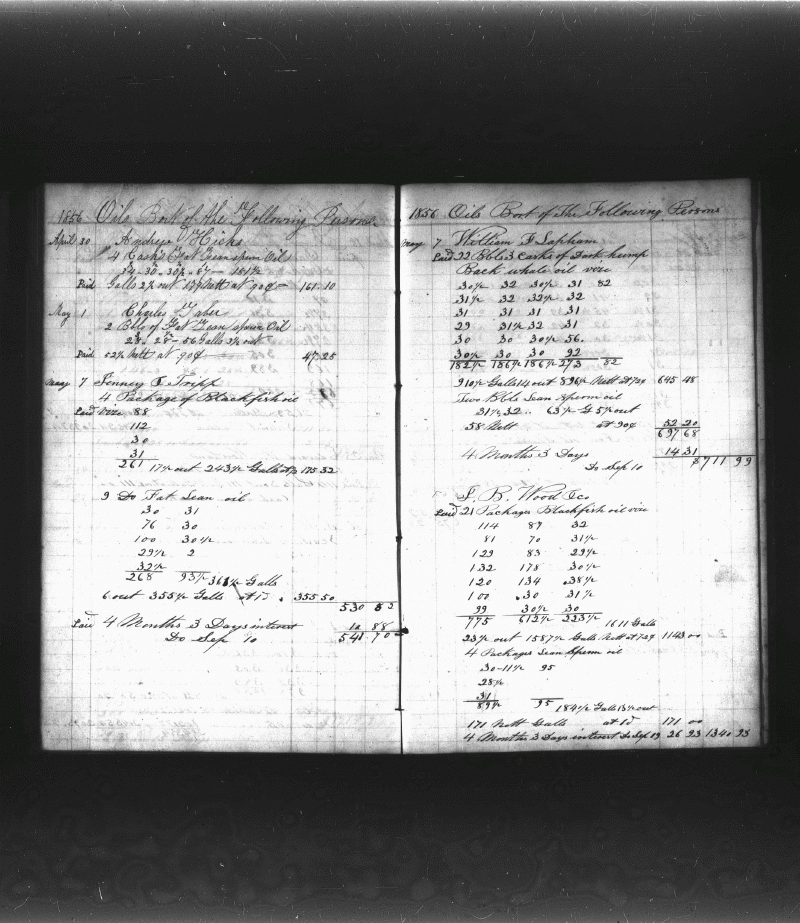 1856 Oils Bort of the Following Persons
April 30 Andrew Hicks
4 Casks Fat Lean sperm Oil
34-30-30½-87- 181½
Paid Galls 2½ out 179 Nett at 90¢ 161.10
May 1 Charles Taber
2 Bbls of Fat Lean sperm Oil
28-28-56 Galls 3½ out
Paid 52½ Nett at 90¢ 47.25
May 7 Penney T. Tripp
4 Package of Blackfish oil
Paid viz 88
112
30
31
261 17½ out 243½ Galls 175 32
9 Do Fat Lean oil
30 31
76 30
100 30½
29½ 2
32½
268 93½ 361½ Galls
6 out 355½ Galls at 1d 355 50
530 82
Paid 4 Months 3 Days interest 10 88
To Sep 10 541 70
1856 Oils Bort of The Following Persons
May 7 William F Lapham
Paid 22 Bbls 3 Casks of hump
Back whale oil viz
30½ 32 30½ 31 82
31½ 32 32½ 32
31 31 31 31
29 31½ 32 31
30 30 30½ 56
30½ 30 30 92
182½ 186½ 186½ 273 82
910½ Galls 14 out 896½ Nett at 72¢ 645 48
Two Bbls Lean sperm oil
31½ 32 63½ G 5½ out
58 Nett at 90¢ 52 20
697 68
4 Months 3 Days 14 31
To Sep 10 $711 99
J. B. Wood & co
Paid 21 Packages Blackfish oil viz
114 87 32
81 70 31½
129 83 29½
132 178 30½
120 134 38½
100 30 31½
99 30½ 30
775 612½ 223½ 1611 Galls
23½ out 1587½ Galls Nett at 72¢ 1143 00
4 Packages Lean Sperm oil
30-11½ 95
28½
31
89½ 95 184½ Galls 13½ out
171 Nett Galls at 1d 171 00
4 Months 3 Days interest To Sep 10 26 93 1340 93